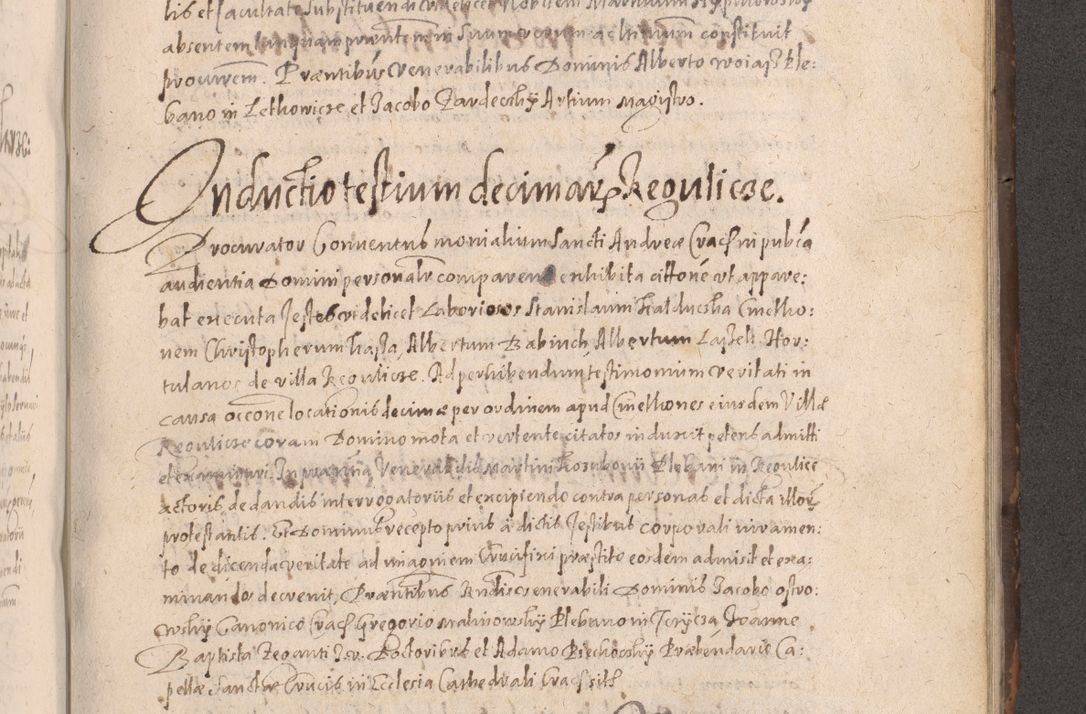 lis et facultate substituendi videlicet Nobilem Martinum
absentem tanquam præntem in suum verum ac ltimum constituit
procurem. Præntibus Venerabilibus Dominis Alberto ple:
bano in Lethowicze et Jacobo Zardeczky Artium Magistro.
Inductio testium decimarum Regulicze.
Procurator Conventus monialium Sancti Andreæ Crac in publica
audientia Domini personalr comparens exhibita cittone ut appare:
bat executa Testes videlicet Laboriosos Stanislaum Cmetho:
nem Christopherum Albertum Babinch Albertum Hor:
tulanos de villa Regulicze. Ad perhibendum testimonium veritati in
causa occone locationis decimæ per ordinem apud Cmethones eiusdem Villæ
Regulicze coram Domino mota et vertente citatos induxit petens admitti
et examinari. In præntia Venerabilis Martini Plebani in Regulice
actoris de dandis interrogatoriis et excipiendo contra personas et dicta illorum
protestantis. Et Dominus recepto prius a dictis Testibus corporali iuramen:
to de dicenda veritate ad imaginem Crucifixi præstito eosdem admisit et exa:
minandos decrevit, Præntibus Rndis venerabili Dominis Jacobo ostro:
wsky Canonico Crac Gregorio Malinowsky Plebano in Joanne
Baptista Doctoribus et Adamo Præbendario Ca:
pellæ Sanctæ Crucis in Ecclesia Cathedrali Crac